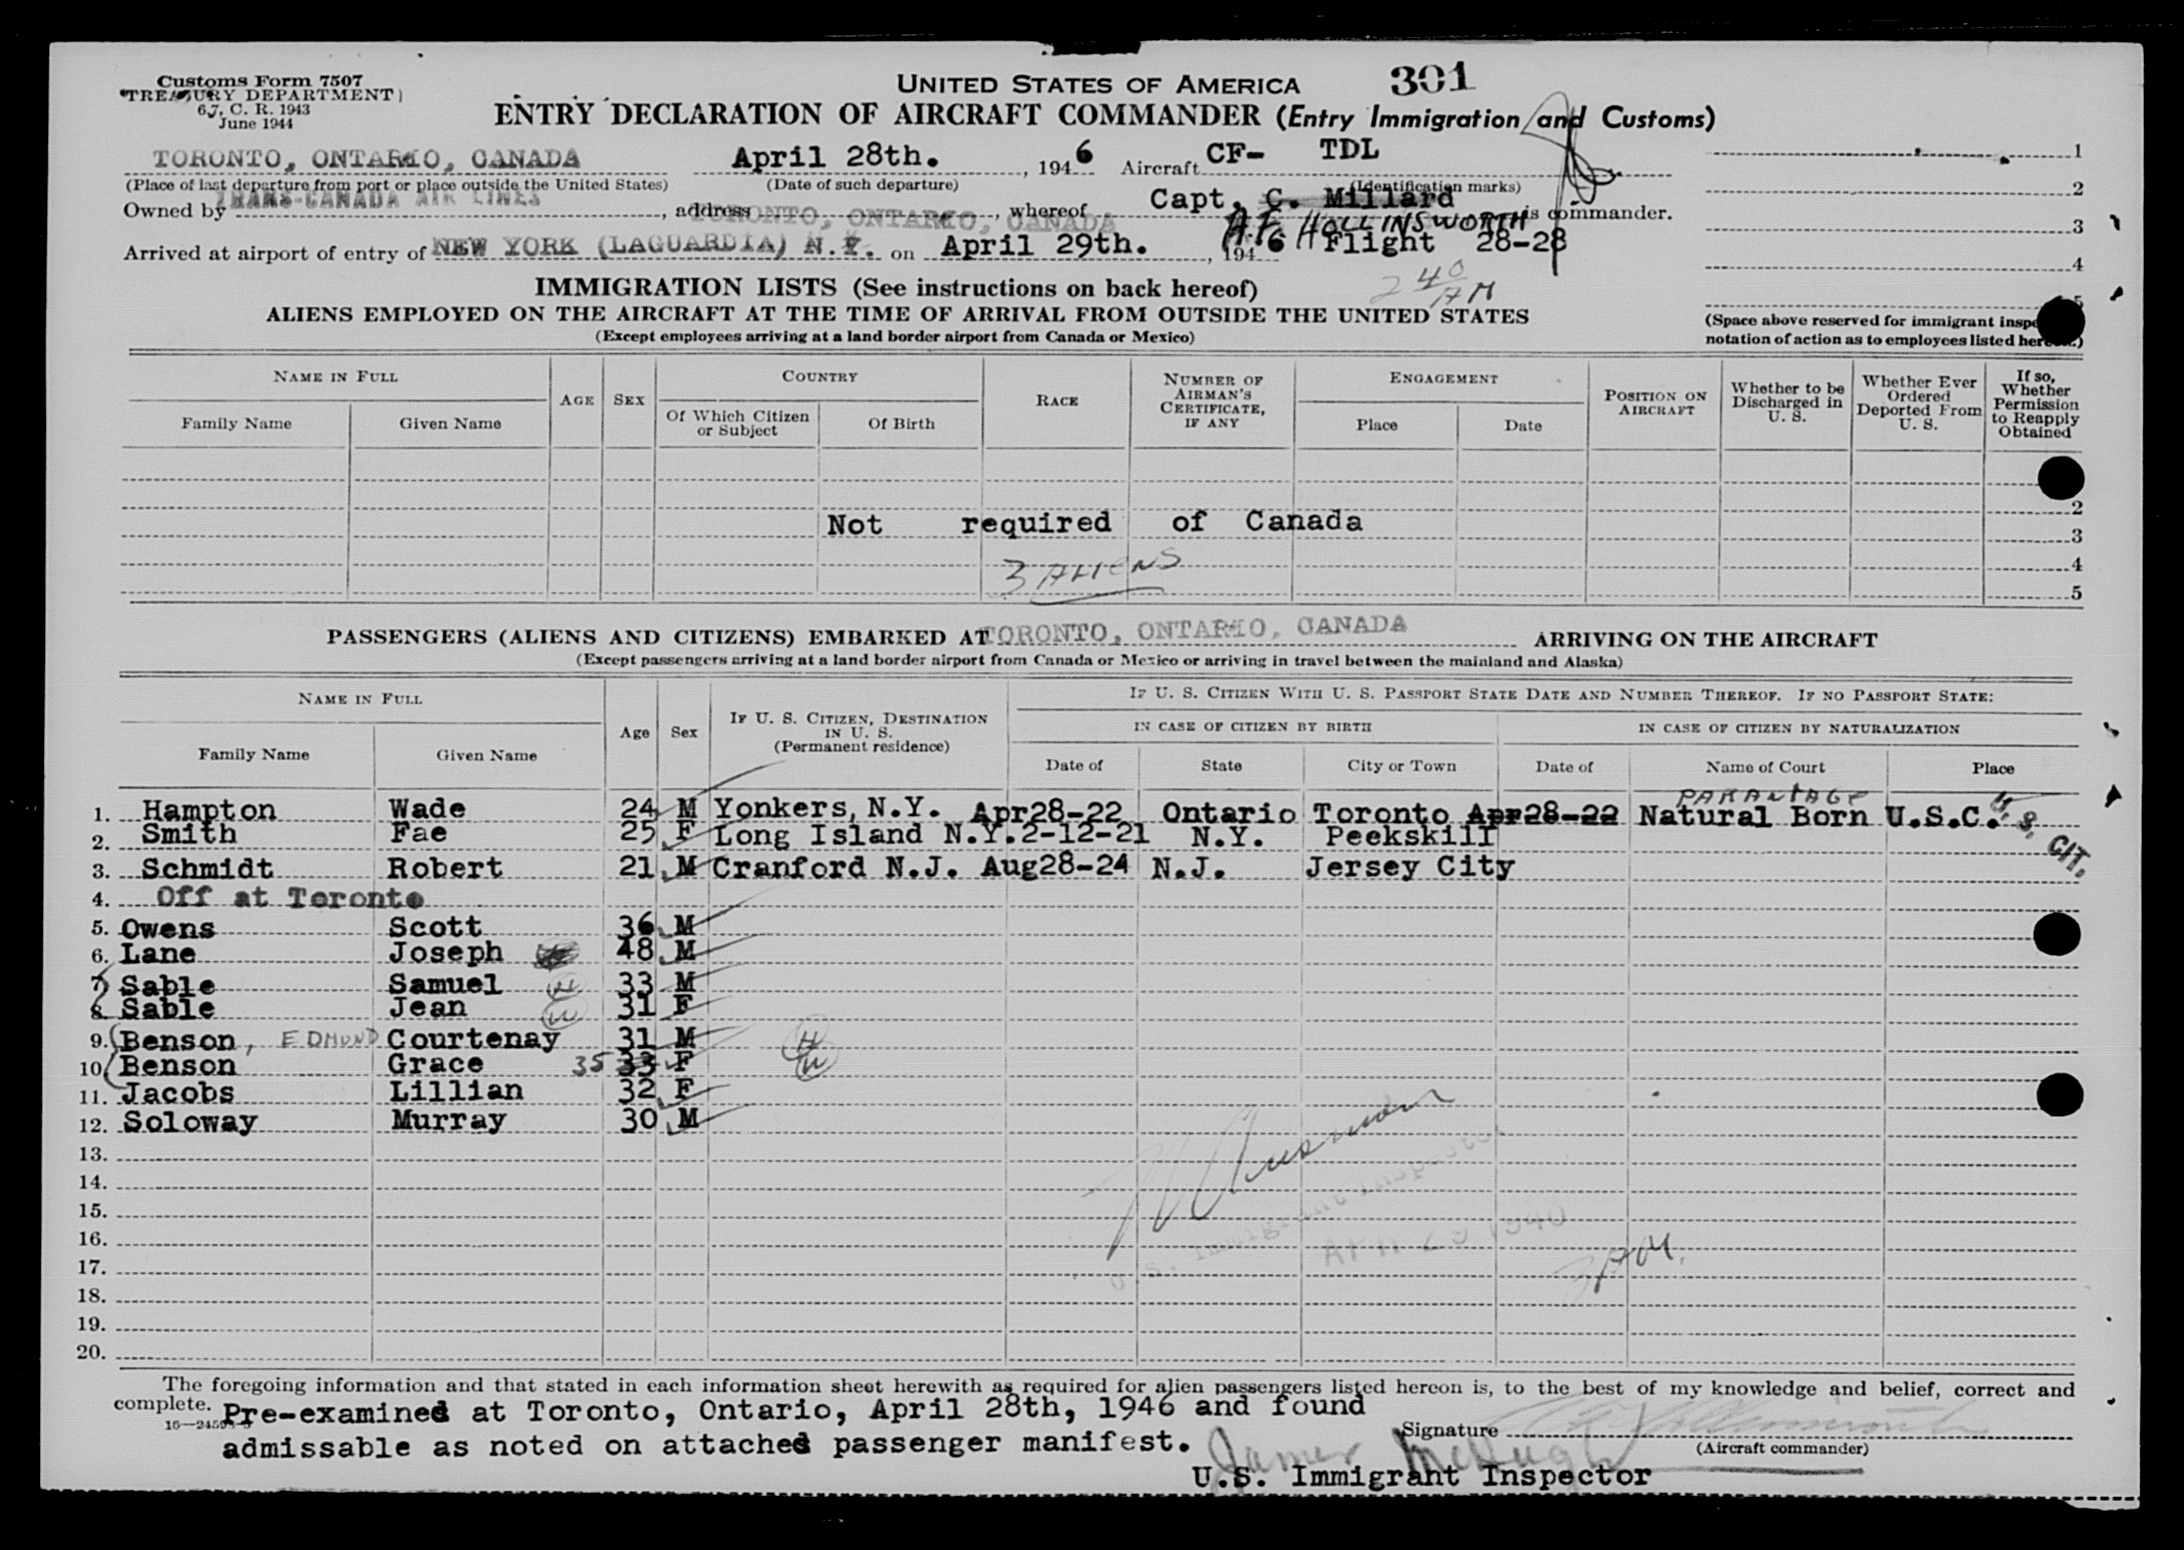 Customs Form 7507
TREASURY DEPARTMENT
6.7, C. R. 1943
June 1944
UNITED STATES OF AMERICA 301
ENTRY DECLARATION OF AIRCRAFT COMMANDER (Entry Immigration and Customs)
TORONTO, ONTARIO, CANADA April 28th. , 1946 Aircraft CF- TDL 1
(Place of last departure from port or place outside the United States) (Date of such departure) (Identification marks) 2
Owned by TRANS-CANADA AIR LINES , address TORONTO, ONTARIO, CANADA , whereof Capt. C. Millard is commander.
A.F. HOLLINSWORTH 3
Arrived at airport of entry of NEW YORK (LAGUARDIA) N.Y. on April 29th. , 1946 Flight 28-28
4
IMMIGRATION LISTS (See instructions on back hereof) 2 40 AM
5
ALIENS EMPLOYED ON THE AIRCRAFT AT THE TIME OF ARRIVAL FROM OUTSIDE THE UNITED STATES
(Space above reserved for immigrant
(Except employees arriving at a land border airport from Canada or Mexico)
notation of action as to employees listed
NAME IN FULL AGE SEX COUNTRY RACE NUMBER OF AIRMAN'S CERTIFICATE, IF ANY ENGAGEMENT POSITION ON AIRCRAFT Whether to be Discharged in U. S. Whether Ever Ordered Deported From U. S. If so, Whether Permission to Reapply Obtained
Family Name Given Name Of Which Citizen or Subject Of Birth Place Date
2
Not required of Canada
3
3 ALIENS 4
5
PASSENGERS (ALIENS AND CITIZENS) EMBARKED AT TORONTO, ONTARIO, CANADA ARRIVING ON THE AIRCRAFT
(Except passengers arriving at a land border airport from Canada or Mexico or arriving in travel between the mainland and Alaska)
NAME IN FULL Age Sex IF U. S. CITIZEN, DESTINATION IN U. S. (Permanent residence) IF U. S. CITIZEN WITH U. S. PASSPORT STATE DATE AND NUMBER THEREOF. IF NO PASSPORT STATE:
IN CASE OF CITIZEN BY BIRTH IN CASE OF CITIZEN BY NATURALIZATION
Family Name Given Name Date of State City or Town Date of Name of Court Place
PARANTAGE
1. Hampton Wade 24 M Yonkers, N.Y. Apr28-22 Ontario Toronto Apr28-22 Natural Born U.S.C. U.S. CIT.
2. Smith Fae 25 F Long Island N.Y. 2-12-21 N.Y. Peekskill
3. Schmidt Robert 21 M Cranford N.J. Aug28-24 N.J. Jersey City
4. Off at Toronto
5. Owens Scott 36 M
6. Lane Joseph 48 M
7. Sable Samuel H 33 M
8. Sable Jean W 31 F
9. Benson, EDMUND Courtenay 31 M H
10. Benson Grace 35 33 F W
11. Jacobs Lillian 32 F
12. Soloway Murray 30 M
13.
14.
15.
16.
17.
18.
19.
20.
The foregoing information and that stated in each information sheet herewith as required for alien passengers listed hereon is, to the best of my knowledge and belief, correct and
complete. Pre-examined at Toronto, Ontario, April 28th, 1946 and found
Signature
admissable as noted on attached passenger manifest. (Aircraft commander)
James McHugh
U.S. Immigrant Inspector